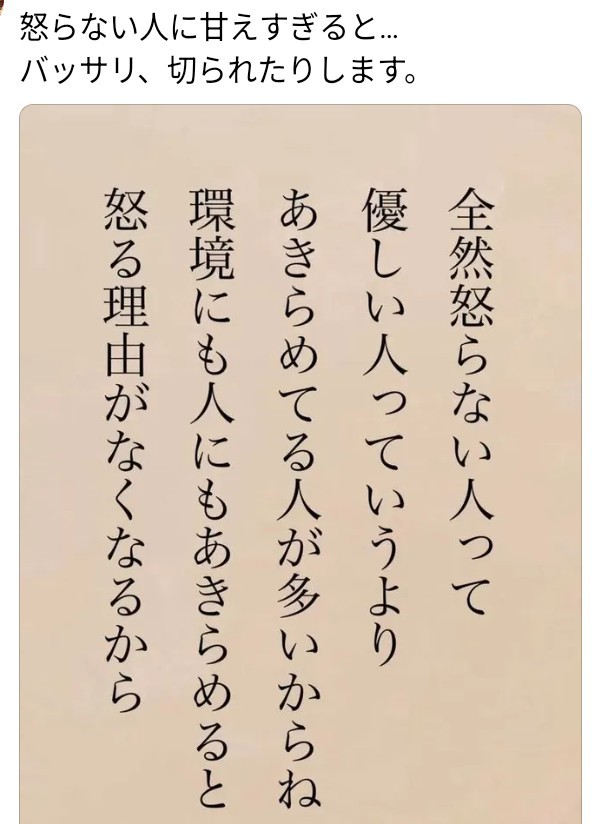 怒らない人に甘えすぎると...
バッサリ、切られたりします。
全然怒らない人って
優しい人っていうより
あきらめてる人が多いからね
環境にも人にもあきらめると
怒る理由がなくなるから